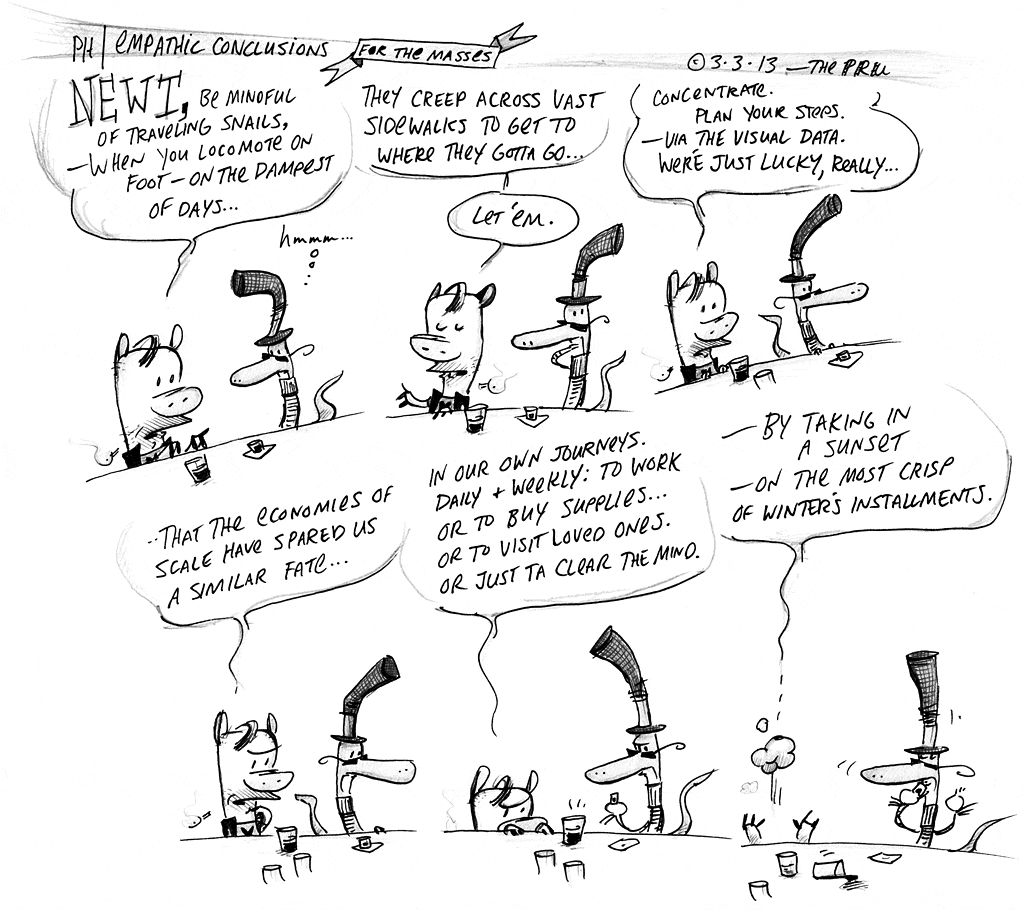 PH | EMPATHIC CONCLUSIONS
FOR THE MASSES
© 3.3.13 —THE PRU
NEWT, BE MINDFUL
OF TRAVELING SNAILS,
—WHEN YOU LOCOMOTE ON
FOOT—ON THE DAMPEST
OF DAYS...
hmmm...
THEY CREEP ACROSS VAST
SIDEWALKS TO GET TO
WHERE THEY GOTTA GO...
LET 'EM.
CONCENTRATE.
PLAN YOUR STEPS.
—VIA THE VISUAL DATA.
WE'RE JUST LUCKY, REALLY...
..THAT THE ECONOMIES OF
SCALE HAVE SPARED US
A SIMILAR FATE...
IN OUR OWN JOURNEYS.
DAILY + WEEKLY: TO WORK
OR TO BUY SUPPLIES...
OR TO VISIT LOVED ONES.
OR JUST TA CLEAR THE MIND.
—BY TAKING IN
A SUNSET
—ON THE MOST CRISP
OF WINTER'S INSTALLMENTS.